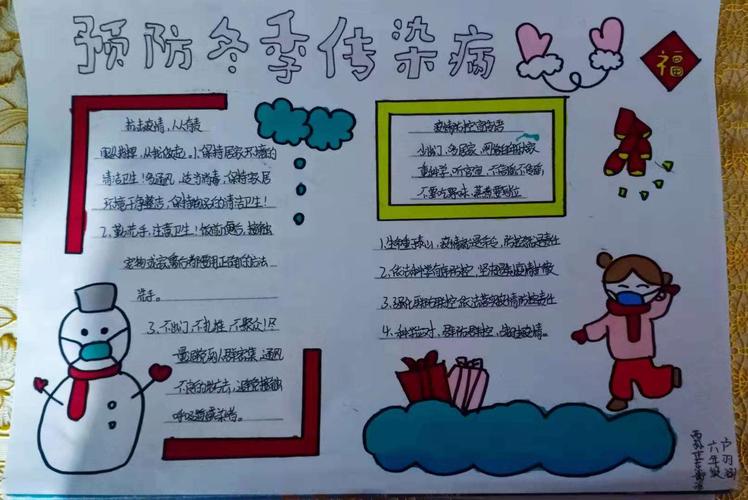 预防冬季传染病
福
抗击疫情，人人有责
从我做起，保持居家环境的
清洁卫生！多通风，适当消毒，保持家居
环境干净整洁，保持物品的清洁卫生！
2、勤洗手，注意卫生！饭前便后，接触
宠物或家禽后都要用正确的方法
洗手。
3、不出门，不扎堆，不聚众！尽
量避免到人群密集，通风
不良的地方去，避免接触
呼吸道感染者。
疫情防控宣传语
少出门，多居家
重科学，听官宣，不信谣不传谣
不要吃野味
1、生命重于泰山，疫情就是命令，防控就是责任
2、依法科学有序防控
3、强化联防联控，依法落实疫情防控责任
4、科学应对，群防群控，战胜疫情。
六年级